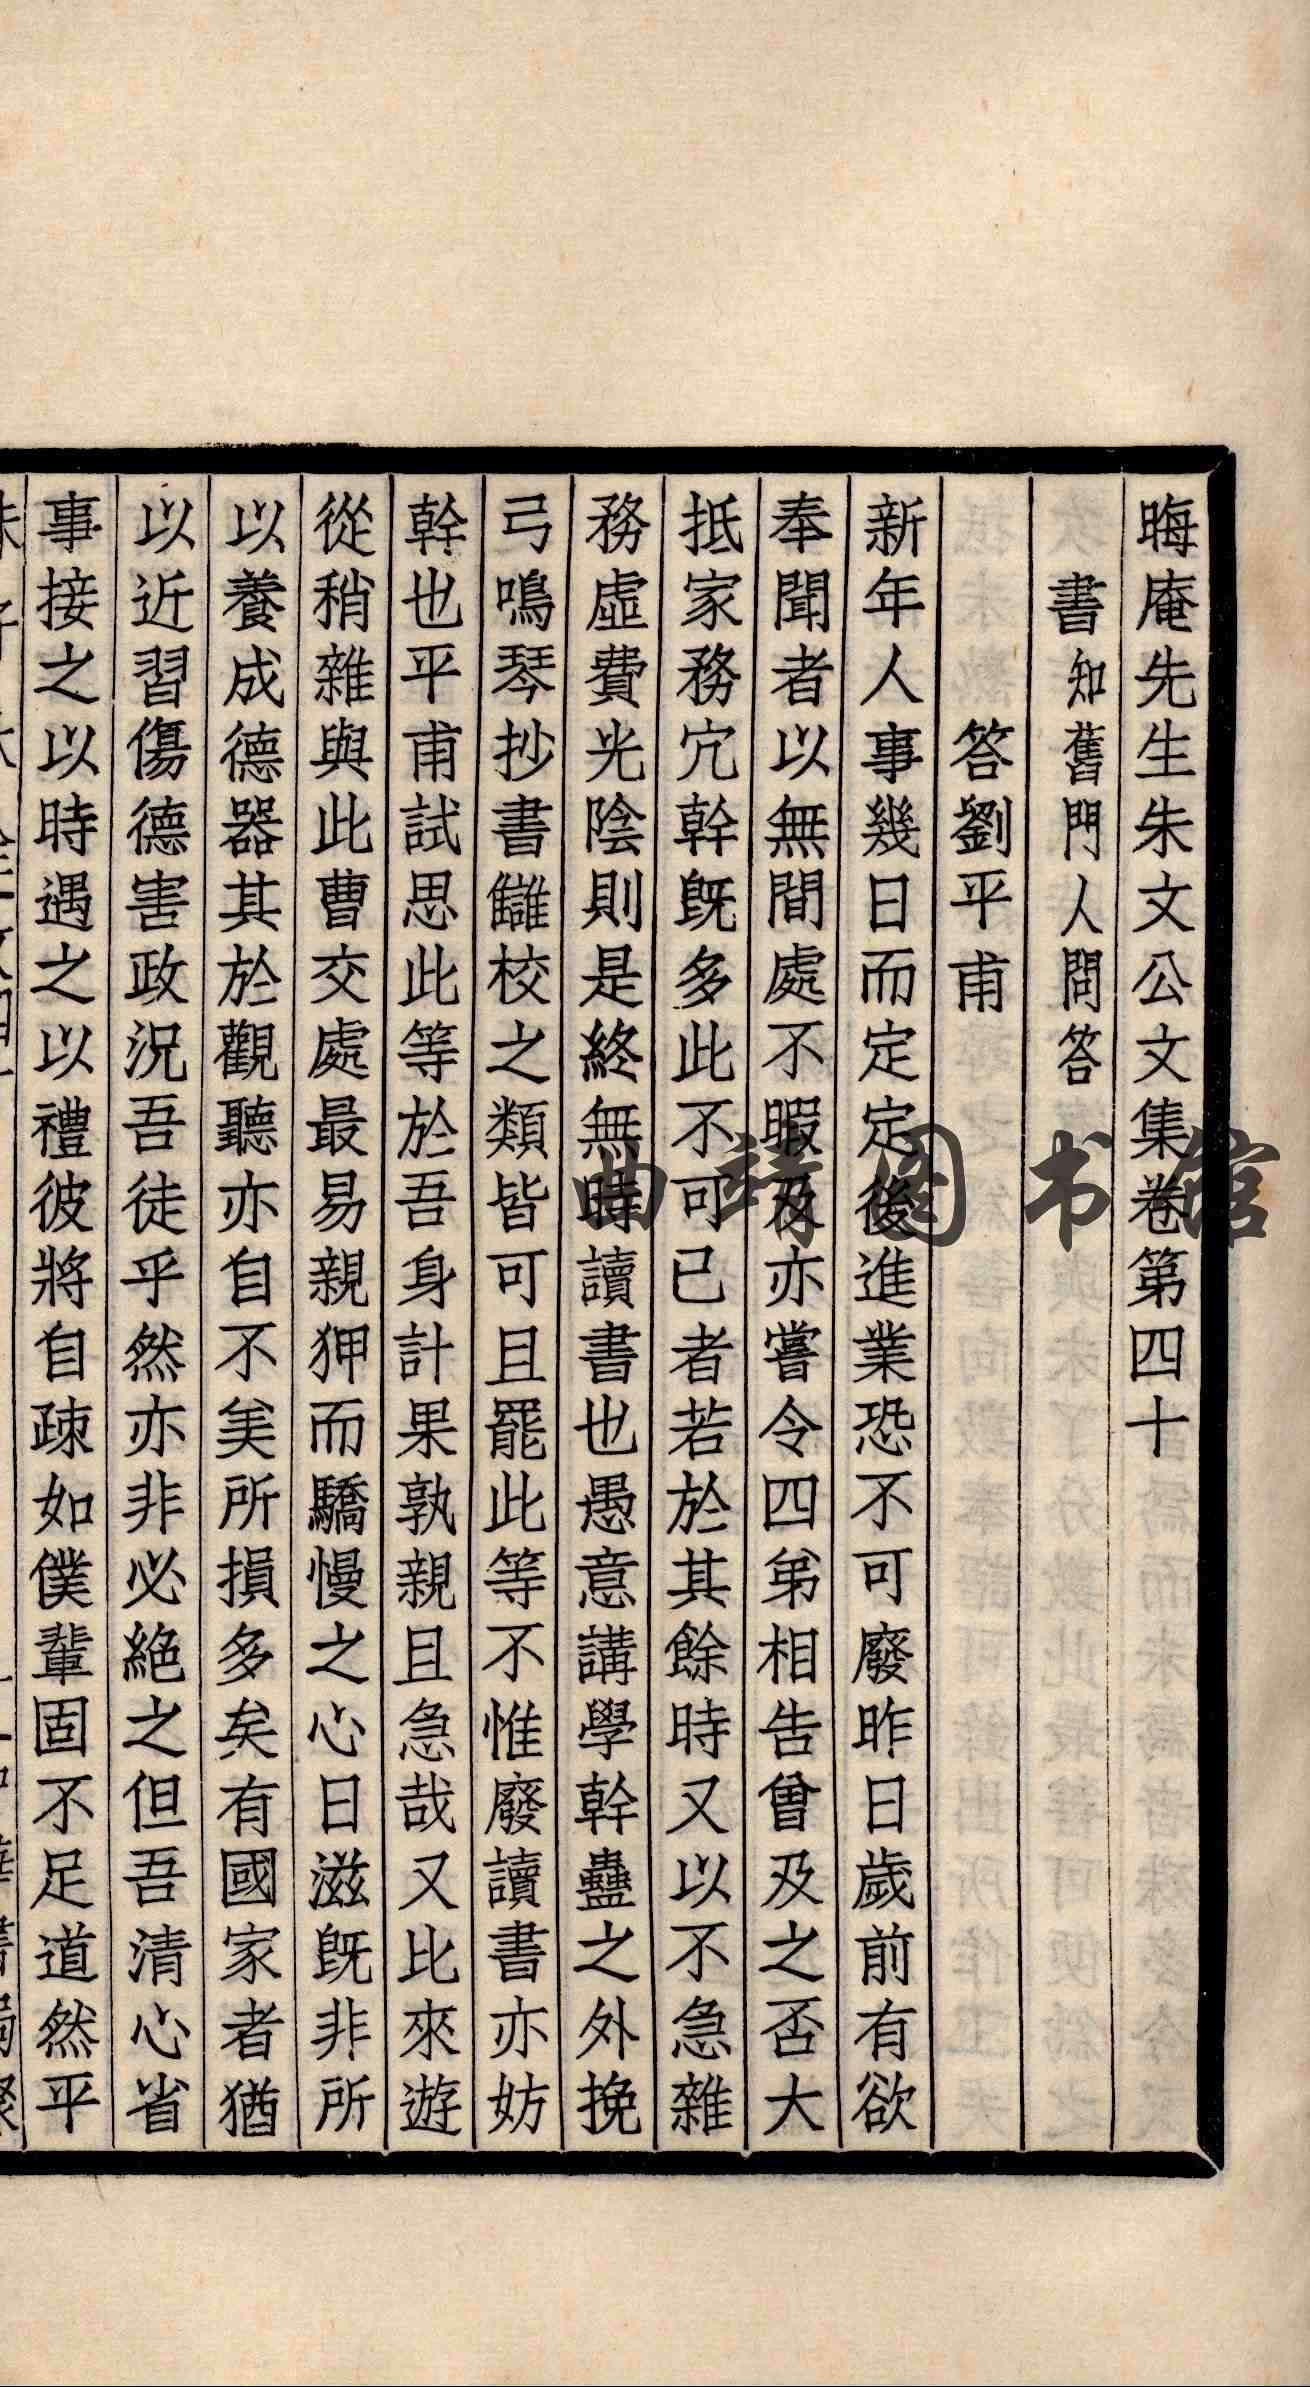 晦庵先生朱文公文集卷第四十
書知舊門人問答
答劉平甫
新年人事幾日而定定後進業恐不可廢昨日歲前有欲
奉聞者以無間處不暇及亦嘗令四弟相告曾及之否大
抵家務宂幹既多此不可已者若於其餘時又以不急雜
務虛費光陰則是終無時讀書也愚意講學幹蠱之外挽
弓鳴琴抄書讎校之類皆可且罷此等不惟廢讀書亦妨
幹也平甫試思此等於吾身計果孰親且急哉又比來遊
從稍雜與此曹交處最易親狎而驕慢之心日滋既非所
以養成德器其於觀聽亦自不美所損多矣有國家者猶
以近習傷德害政況吾徒乎然亦非必絕之但吾清心省
事接之以時遇之以禮彼將自疎如僕輩固不足道然平
曲靖图书馆